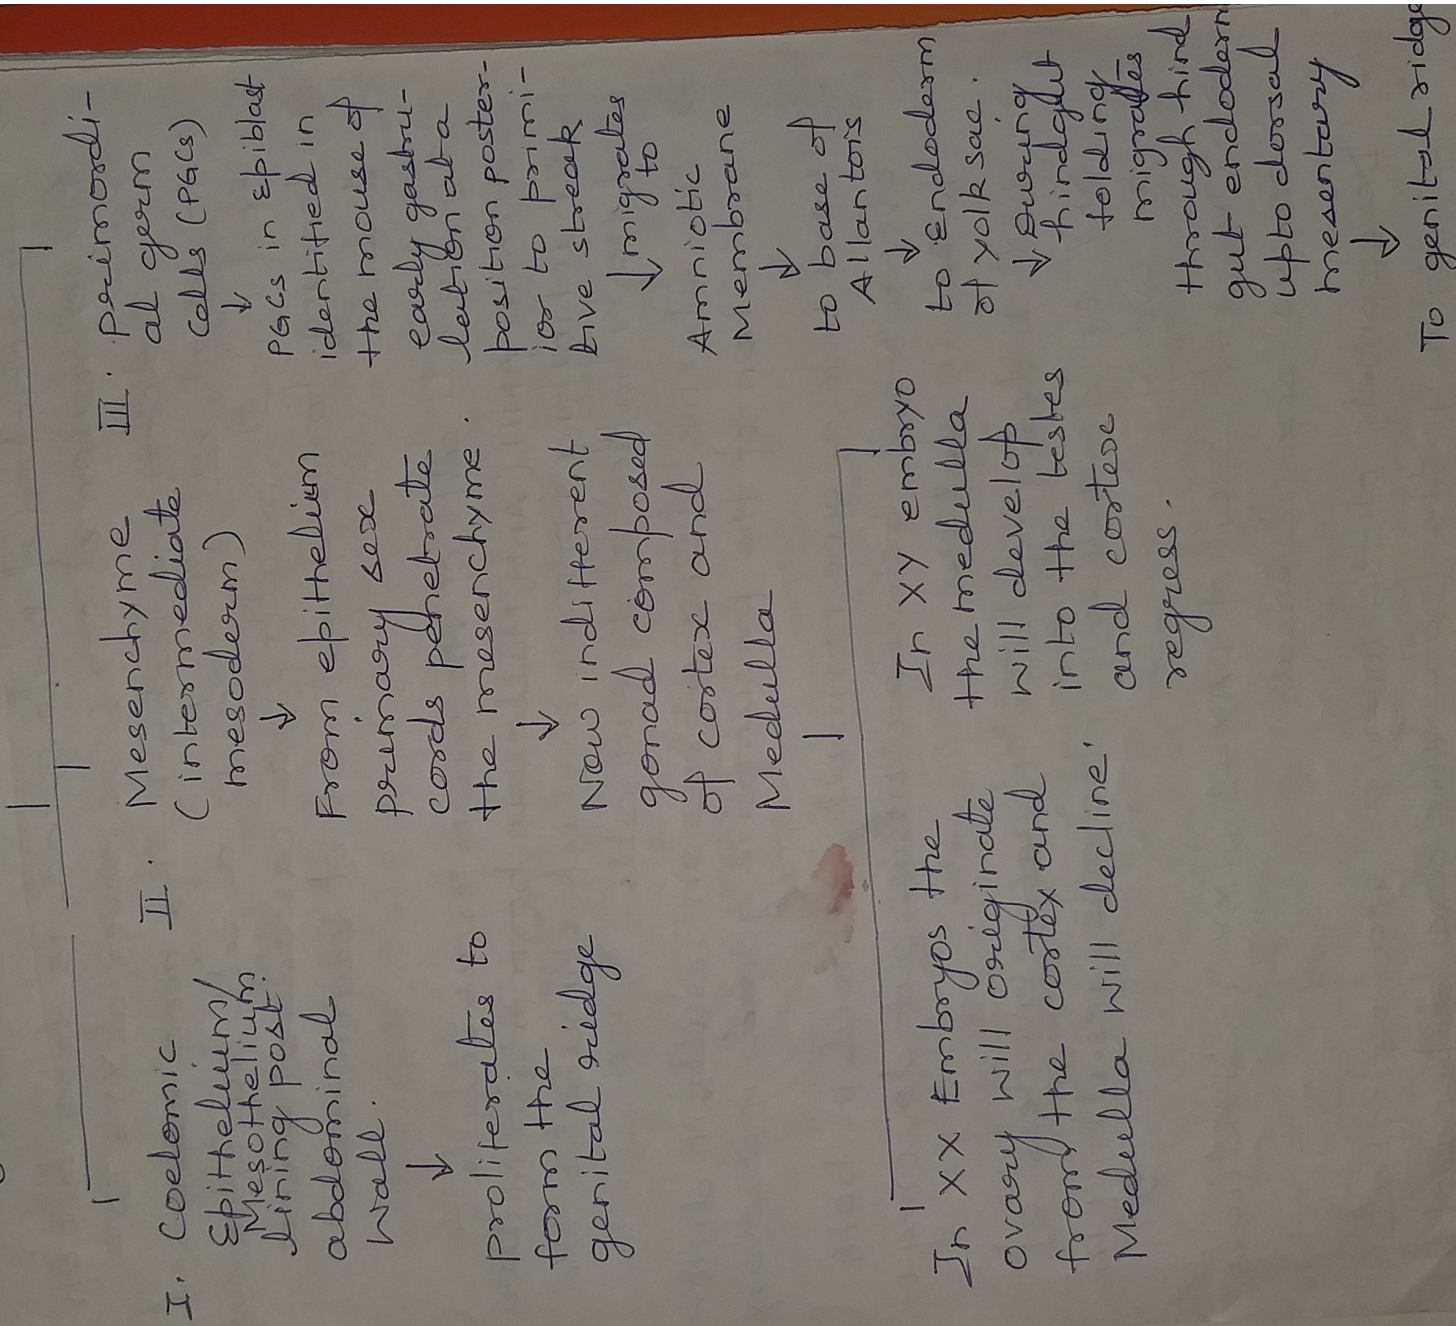 I. Coelomic
Epithelium/
Mesothelium
lining post.
abdominal
wall.
↓
proliferates to
form the
genital ridge
II. Mesenchyme
(intermediate
mesoderm)
↓
From epithelium
primary sex
cords penetrate
the mesenchyme.
↓
Now indifferent
gonad composed
of cortex and
Medulla
In XX Embryos the
ovary will originate
from the cortex and
Medulla will decline.
In XY embryo
the medulla
will develop
into the testes
and cortex
regress.
III. primordi-
al germ
cells (PGCs)
↓
PGCs in Epiblast
identified in
the mouse of
early gastru-
lation at a
position poster-
ior to primi-
tive streak
↓ migrates
to
Amniotic
Membrane
↓
to base of
Allantois
↓
to Endoderm
of yolk sac.
↓ During
hindgut
folding
migrates
through hind
gut endoderm
upto dorsal
mesentary
↓
To genital ridge